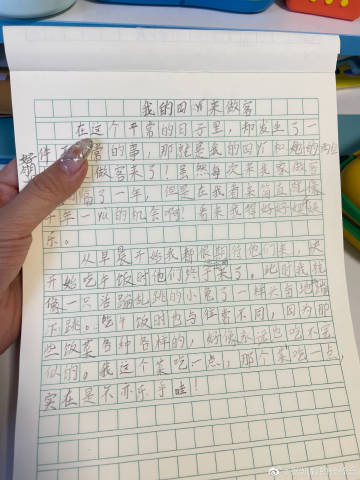 我的四爷来做客
在这个平常的日子里，却发生了一
件不常的事，那就是我的四爷和她的
做客来了！虽然每次来我家做客
了一年，但是在我看来简直就像
年一次的机会啊！看来我得好好快
乐。
从早晨开始我都很期待他们来，快
开始吃午饭时他们终于来了。此时我就
像一只活蹦乱跳的小兔子一样关着地
下跳。吃午饭时也与往常不同，因为那
些饭菜各种各样的，好像永远也吃不完
似的。我这个菜吃一点，那个菜吃一点，
实在是不亦乐乎哇！